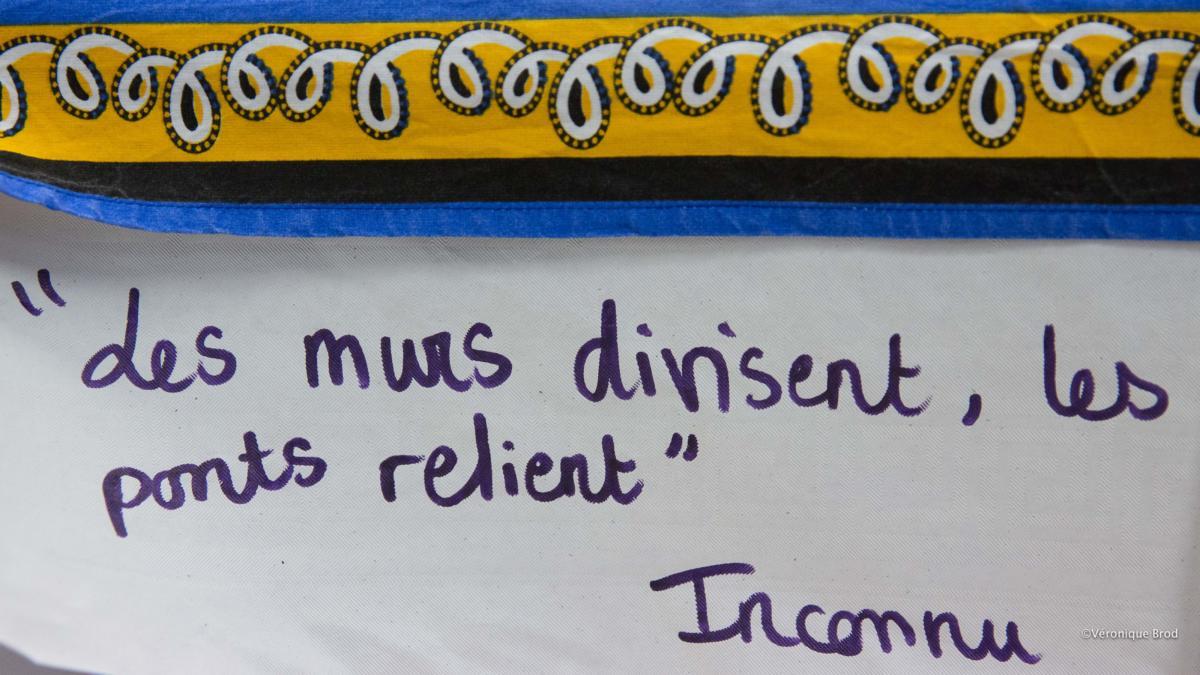 "Les murs divisent, les
ponts relient"
Inconnu
©Véronique Brod